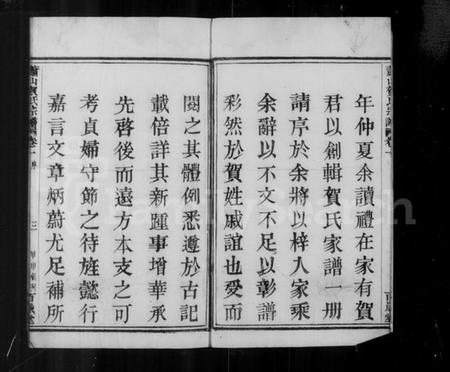 蕭山賀氏宗譜卷一
年仲夏余讀禮在家有賀
君以創輯賀氏家譜一册
請序於余將以梓入家乘
余辭以不文不足以彰譜
彩然於賀姓戚誼也受而
閱之其體例悉遵於古記
載倍詳其新踵事增華承
先啓後而遠方本支之可
考貞婦守節之待旌懿行
嘉言文章炳蔚尤足補所
蕭山賀氏宗譜卷一
三